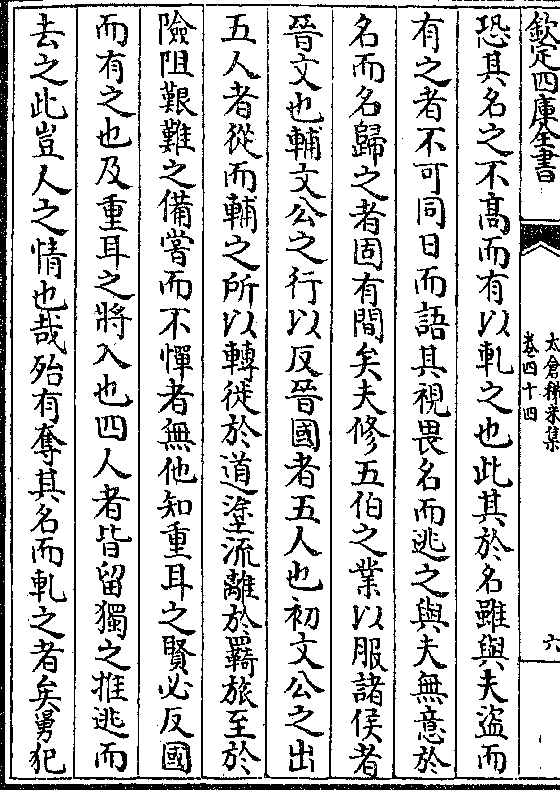 欽定四庫全書
太倉稊米集
卷四十四
六
恐其名之不高而有以軋之也此其於名雖與夫盜而
有之者不可同日而語其視畏名而逃之與夫無意於
名而名歸之者固有間矣夫修五伯之業以服諸侯者
晉文也輔文公之行以反晉國者五人也初文公之出
五人者從而輔之所以轉徙於道塗流離於羇旅至於
險阻艱難之備嘗而不憚者無他知重耳之賢必反國
而有之也及重耳之將入也四人者皆留獨之推逃而
去之此豈人之情也哉殆有奪其名而軋之者矣舅犯